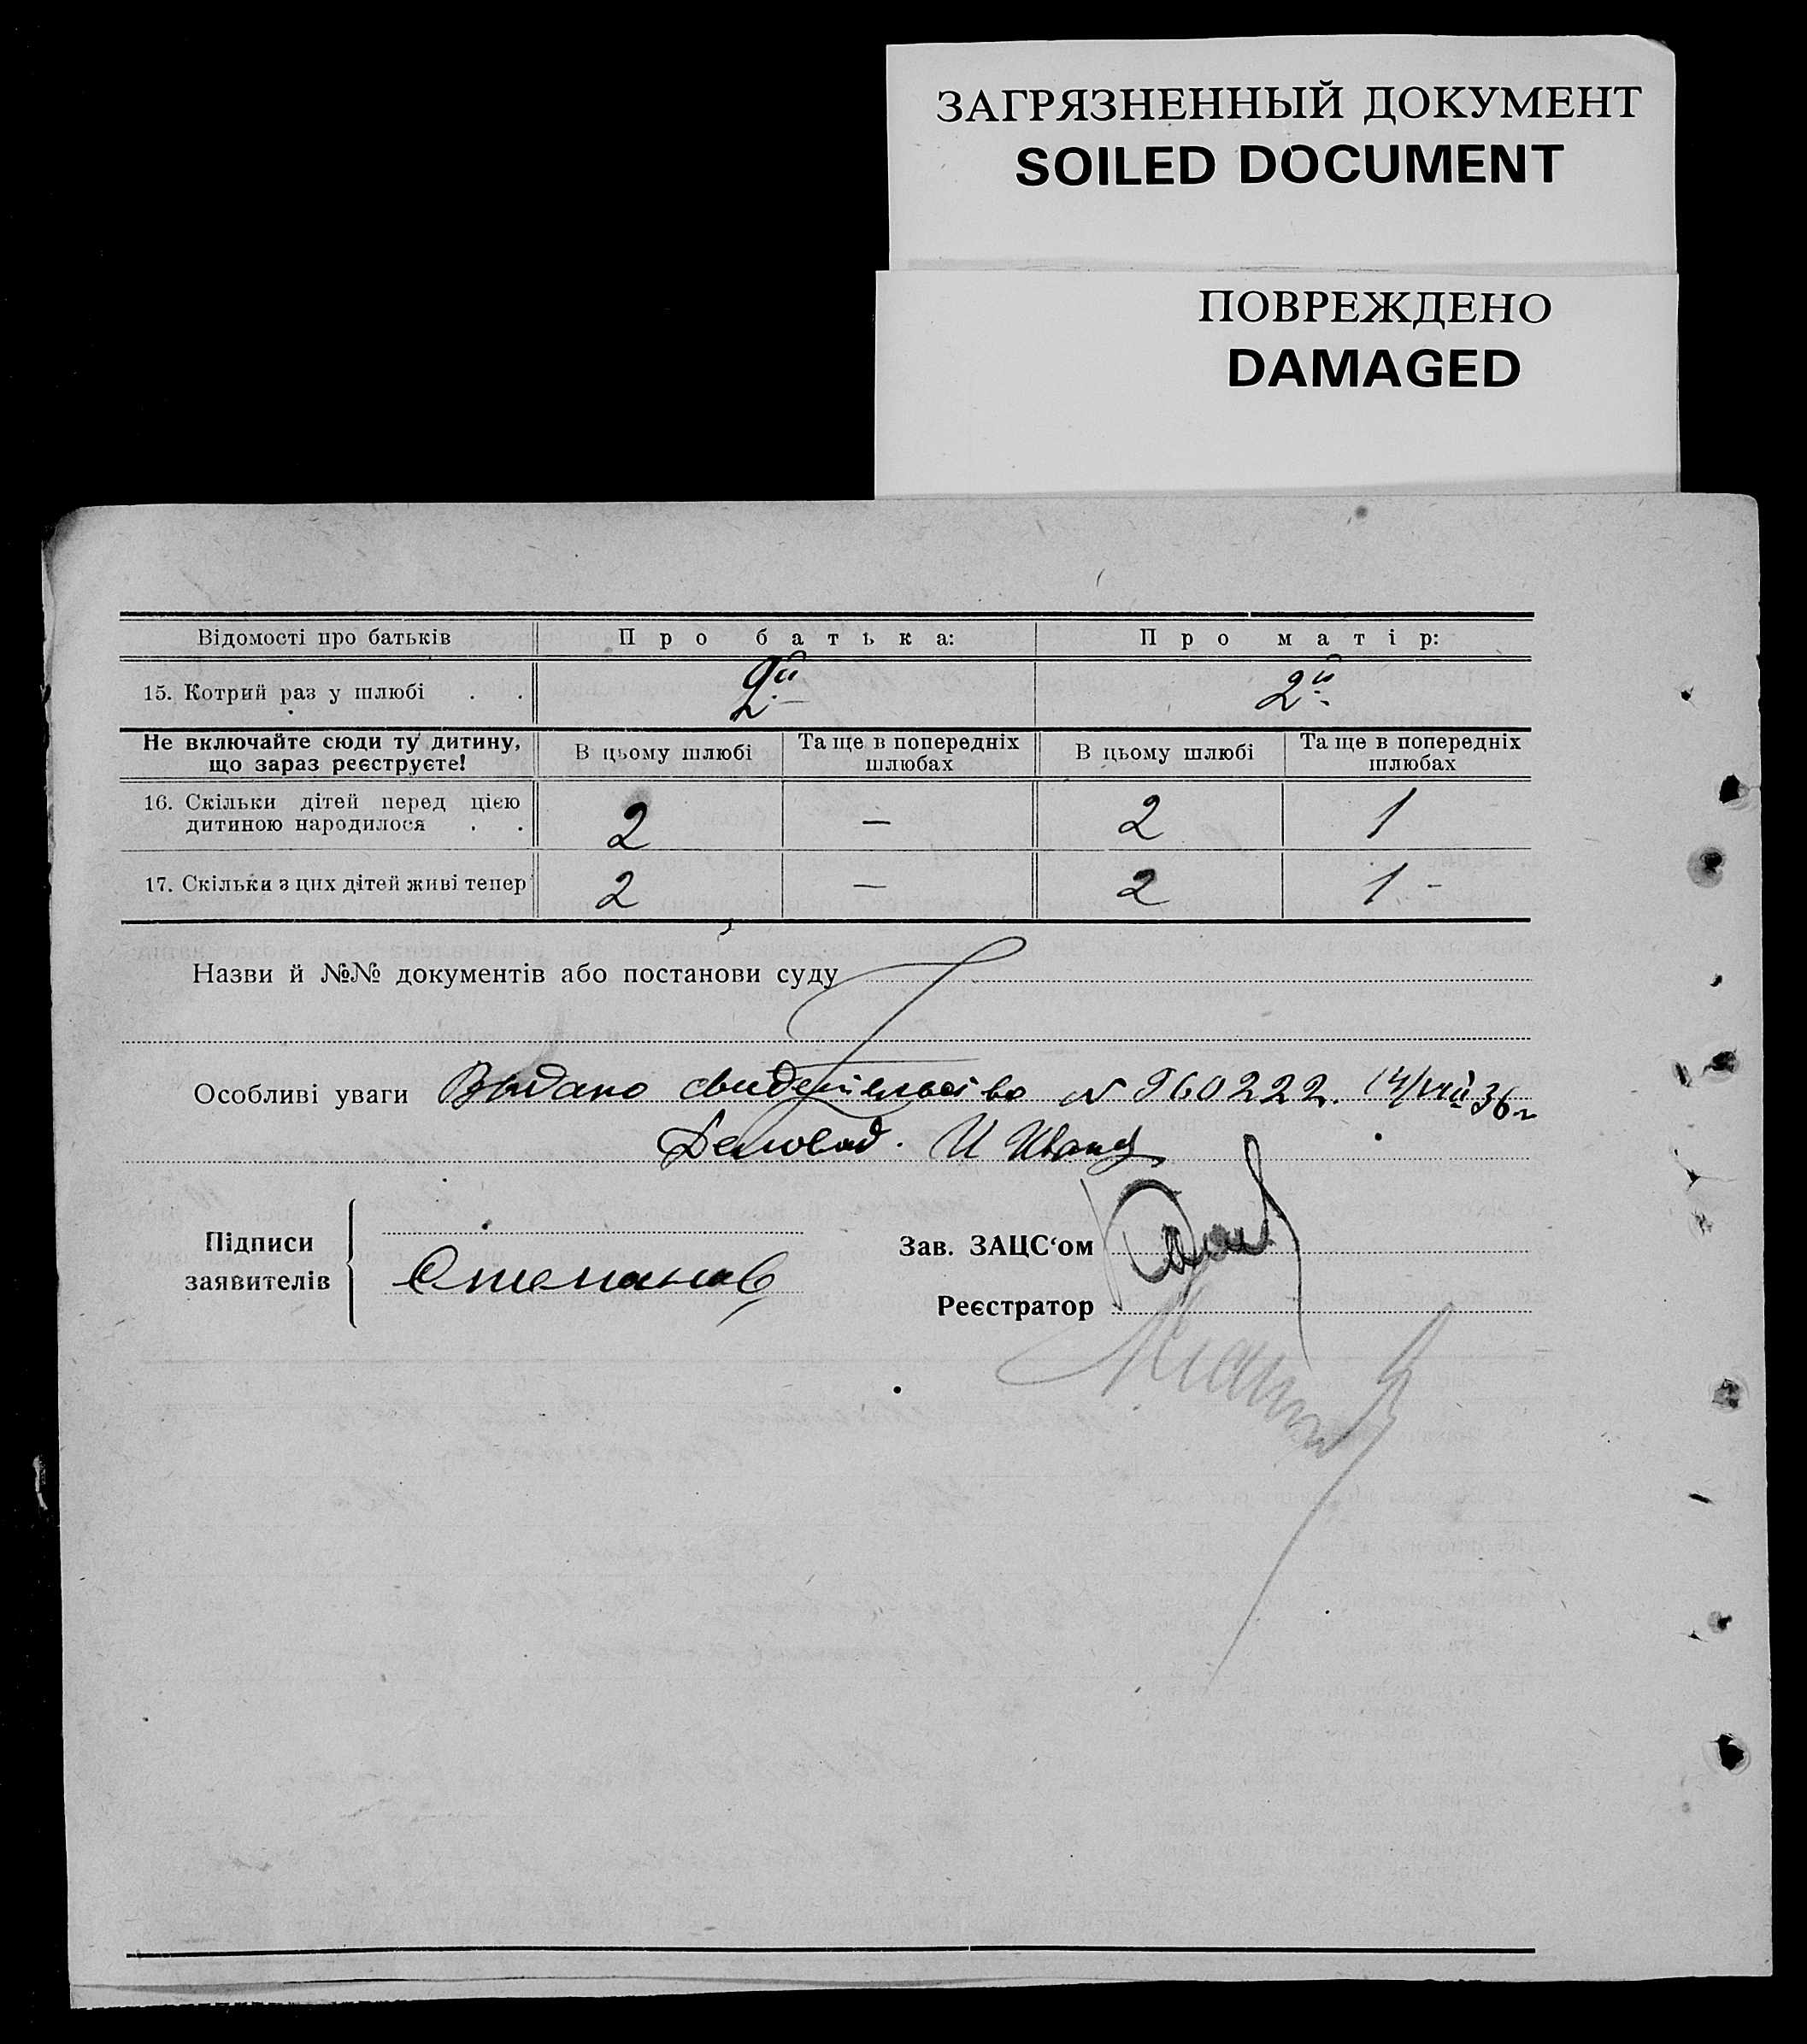 ЗАГРЯЗНЕННЫЙ ДОКУМЕНТ
SOILED DOCUMENT
ПОВРЕЖДЕНО
DAMAGED
Відомості про батьків Про батька: Про матір:
15. Котрий раз у шлюбі . . 2й 2й
Не включайте сюди ту дитину, що зараз реєструєте! В цьому шлюбі Та ще в попередніх шлюбах В цьому шлюбі Та ще в попередніх шлюбах
16. Скільки дітей перед цією дитиною народилося . . 2 — 2 1
17. Скільки з цих дітей живі тепер 2 — 2 1 -
Назви й №№ документів або постанови суду
Особливі уваги Выдано свидетельство N 960222. 14/VIII 36 г
Деловод.
Підписи заявителів Степанов
Зав. ЗАЦС‘ом
Реєстратор